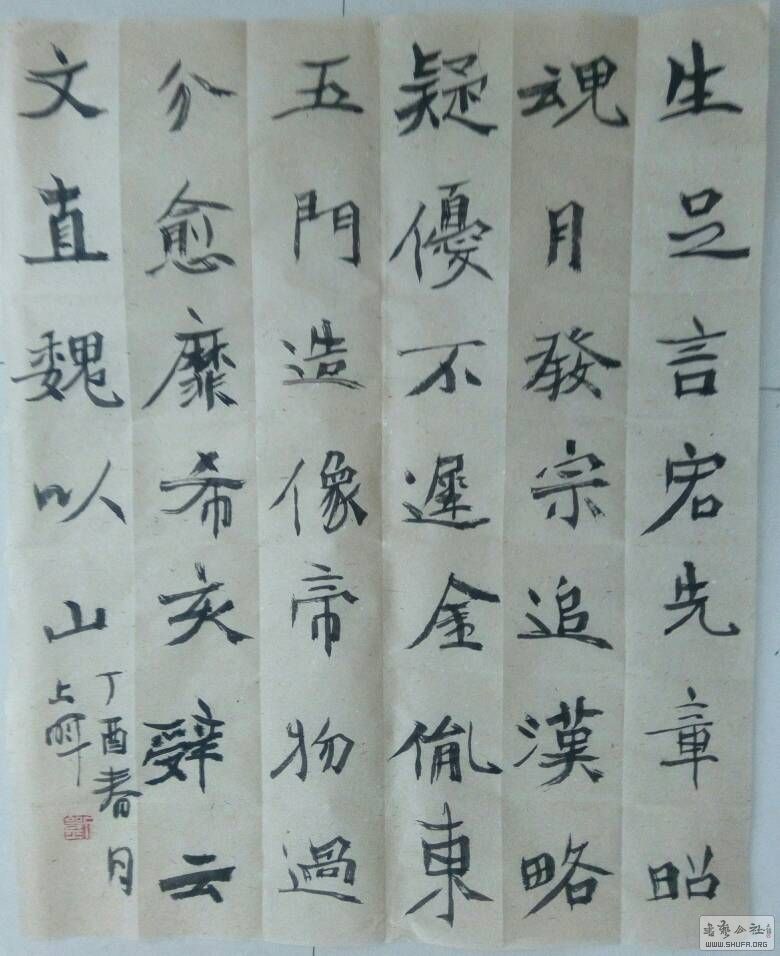 生足言宏先章昭
魂月發宗追漢略
疑優不遲金胤東
五門造像帝物過
分愈靡希亥辤云
文直魏以山
丁酉春月
上
WWW.SHUFA.ORG